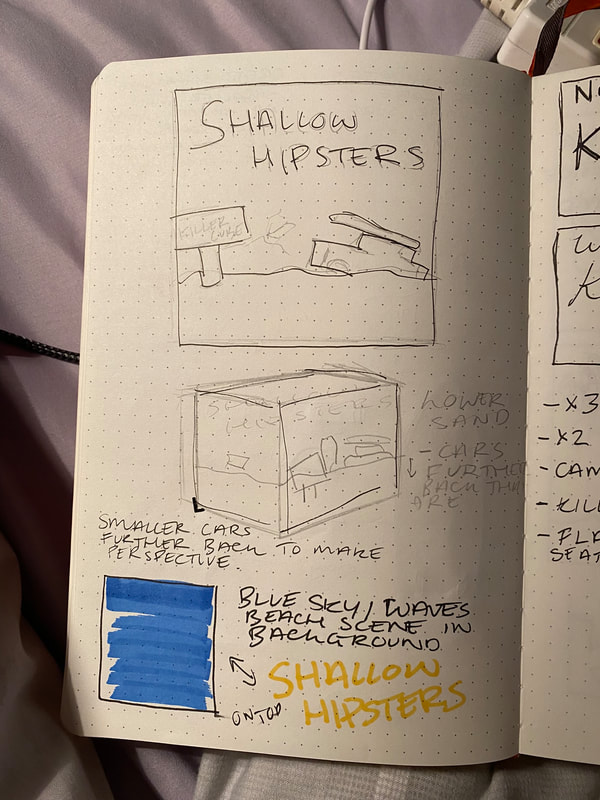 SHALLOW
HIPSTERS
KILLER
SHALLOW
HIPSTERS
LOWER
SAND
- CARS
FURTHER
BACK THA
ARE
SMALLER CARS
FURTHER BACK TO MAKE
PERSPECTIVE.
BLUE SKY / WAVES
BEACH SCENE IN
BACKGROUND
SHALLOW
HIPSTERS
ON TOP
NO
K
K
- X3
- X2
- CAM
- KILL
- FLA
SEAT